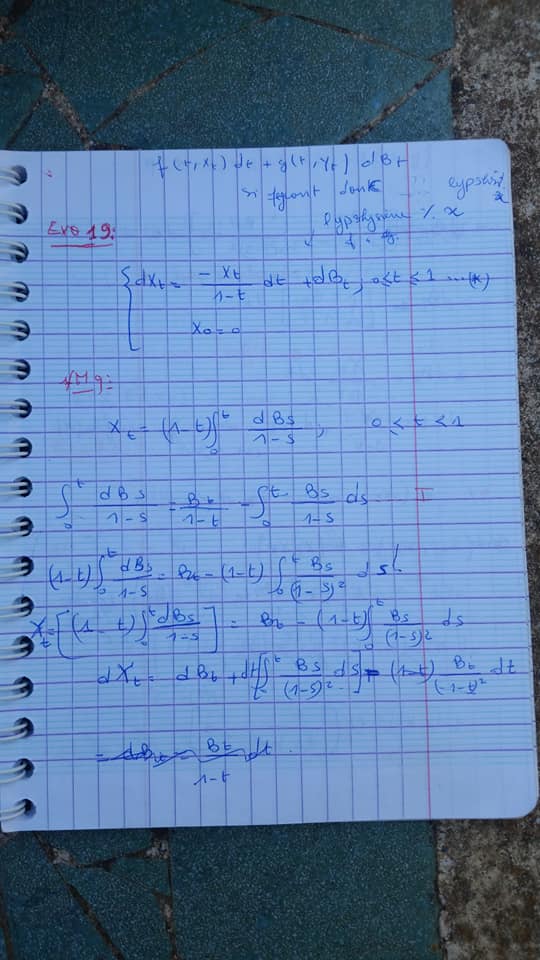 f(t,Xt) dt + g(t,Yt) dBt
si
x
Exo 19:
{ dXt = -Xt/(1-t) dt + dBt, 0≤t≤1 ...(*)
X0 = 0
Mq:
Xt = (1-t)∫₀ᵗ dBs/(1-s), 0≤t<1
∫₀ᵗ dBs/(1-s) = Bt/(1-t) - ∫₀ᵗ Bs/(1-s) ds I
(1-t)∫₀ᵗ dBs/(1-s) = Bt - (1-t)∫₀ᵗ Bs/(1-s)² ds
Xt = [(1-t)∫₀ᵗ dBs/(1-s)] = Bt - (1-t)∫₀ᵗ Bs/(1-s)² ds
dXt = dBt + dt[∫ᵗ Bs/(1-s)² ds] - (1-t) Bt/(1-t)² dt
= dBt - Bt/(1-t) dt.